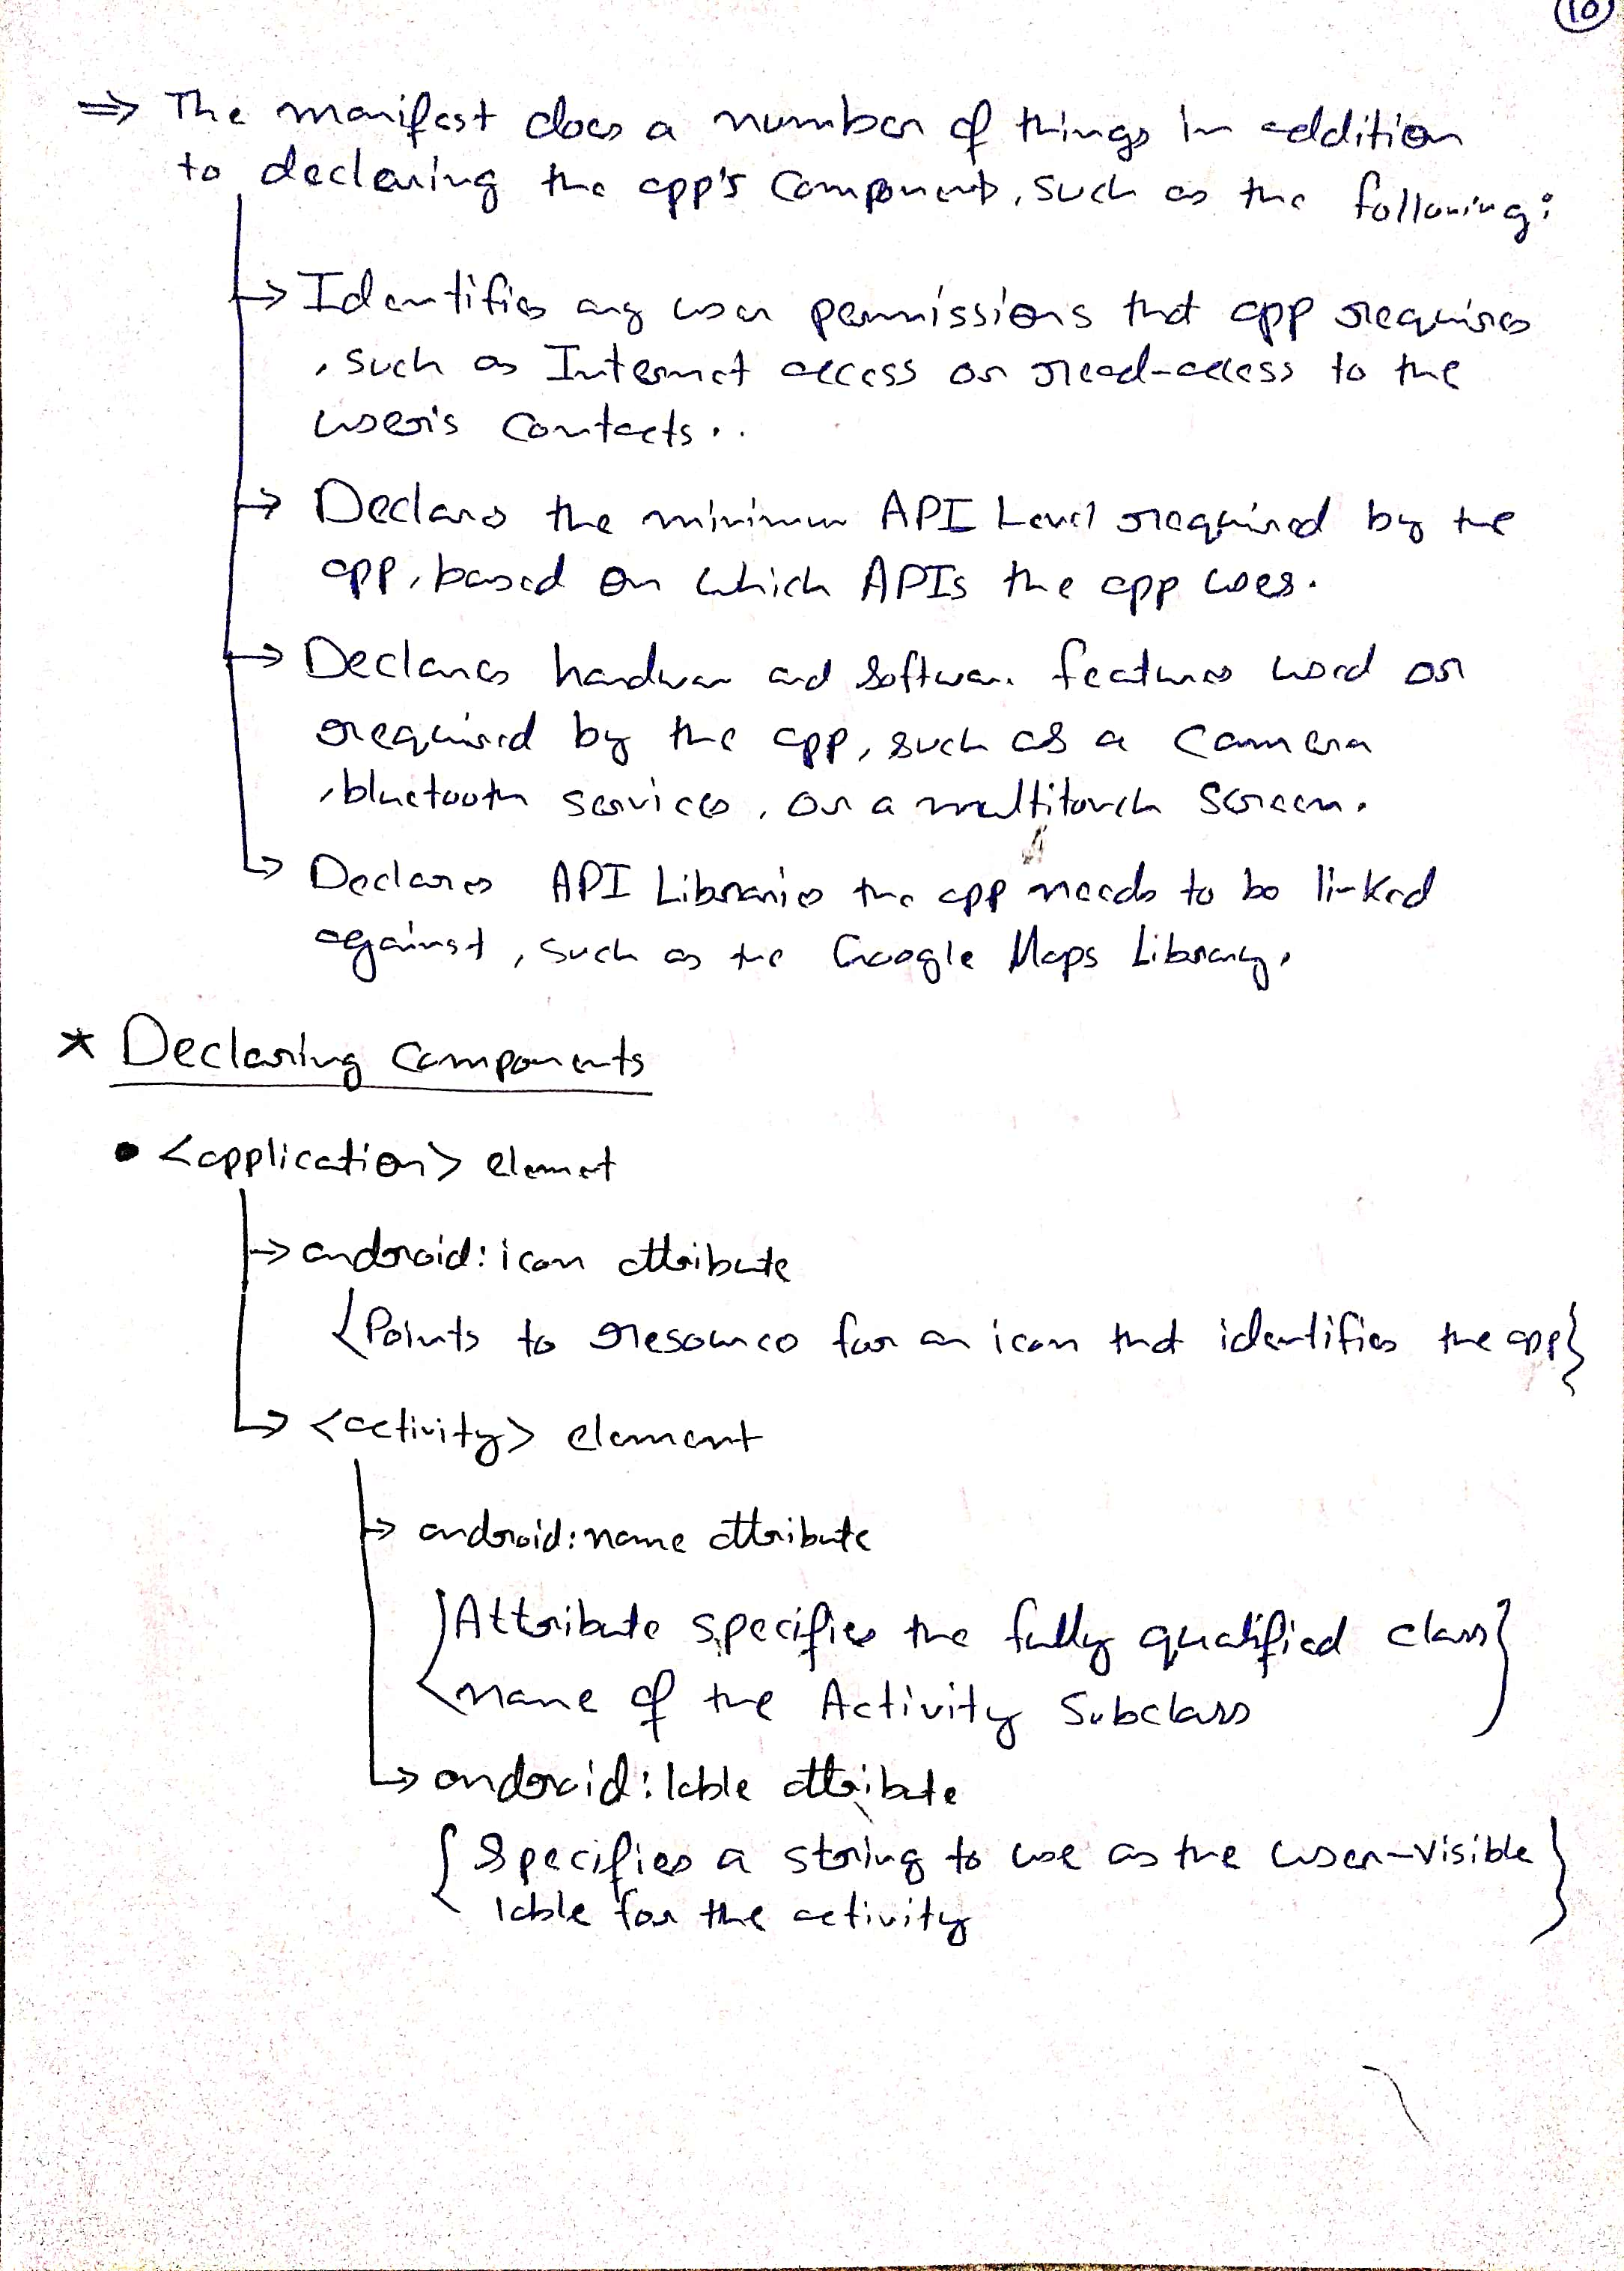 10
⇒ The manifest does a number of things in addition
to declaring the app's components, such as the following:
→ Identifies any user permissions that app requires
, such as Internet access or read-access to the
user's contacts..
→ Declares the minimum API Level required by the
app, based on which APIs the app uses.
→ Declares hardware and software features used or
required by the app, such as a camera
, bluetooth services, or a multitouch screen.
→ Declares API Libraries the app needs to be linked
against, such as the Google Maps Library.
* Declaring components
• <application> element
→ android:icon attribute
{Points to resource for an icon that identifies the app}
→ <activity> element
→ android:name attribute
{Attribute specifies the fully qualified class
name of the Activity Subclass}
→ android:lable attribute
{Specifies a string to use as the user-visible
lable for the activity}